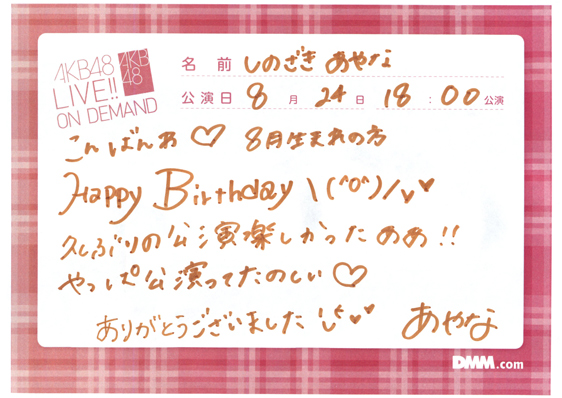 AKB48
LIVE!!
ON DEMAND
AKB
48
名前 しのざき あやな
公演日 8月 24日 18:00公演
こんばんわ♡ 8月生まれの方
Happy Birthday \(^o^)/♥♥
久しぶりの公演楽しかったのあ!!
やっぱ公演ってたのしい♡
ありがとうございました♥♥ あやな
DMM.com